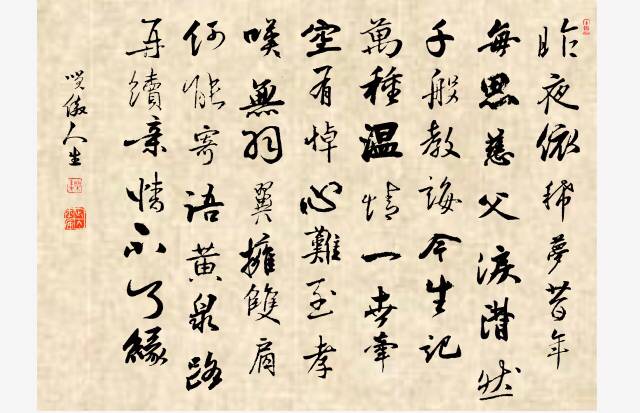 昨夜依稀夢昔年
每思慈父淚潸然
千般教誨今生記
萬種温情一世牽
空有悼心難至孝
嘆無羽翼擁雙肩
何能寄語黄泉路
再續亲情不了緣
咲傲人生